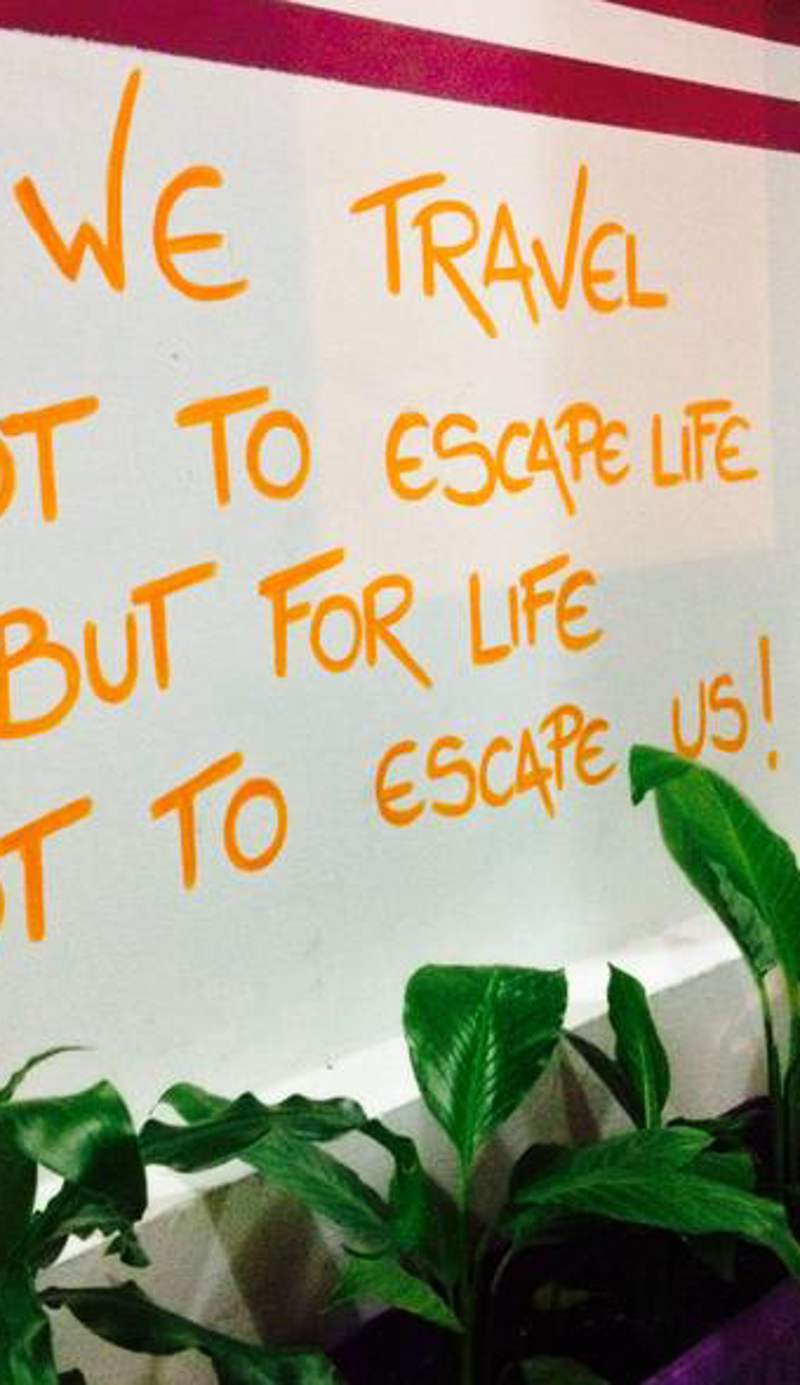 WE TRAVEL
OT TO ESCAPE LIFE
BUT FOR LIFE
OT TO ESCAPE US!